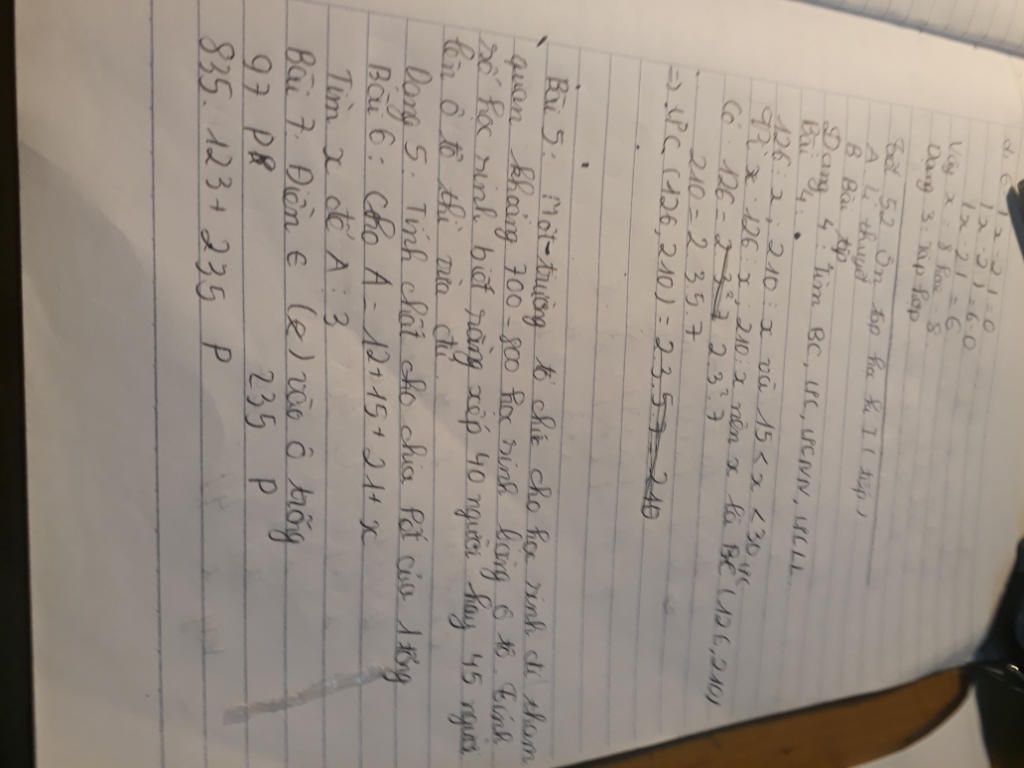 x - 21 = 0
x - 21 = 6.0
x - 21 = 6
Vậy x = 8 hoặc = 8
Dạng 3: Tập hợp
Tiết 52 Ôn tập học kì I (tiếp)
A Lí thuyết
B Bài tập
Dạng 4: Tìm BC, ƯC, ƯCLN, ƯCLL
Bài 4:
126 : x, 210 : x và 15 < x < 30
Vì x 126 : x 210 : x nên x là BC ƯC (126, 210)
Có 126 = 2 3² 7 2.3².7
210 = 2 3 5.7
=> ƯC (126, 210) = 2.3.5.7 = 210
Bài 5: Một trường tổ chức cho học sinh đi tham
quan khoảng 700 - 800 học sinh bằng ô tô. Tính
số học sinh biết rằng xếp 40 người hay 45 người
lên ô tô thì vừa đủ
Dạng 5: Tính chất cho chia hết của 1 tổng
Bài 6: Cho A = 12 + 15 + 21 + x
Tìm x để A : 3
Bài 7. Điền ∈ (∉) vào ô trống
97 P 235 P
835. 123 + 235 P